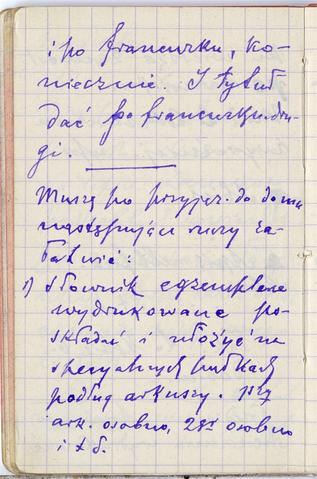 i po francusku, ko-
niecznie. I tytuł
dać po francusku dru-
gi.
Muszę po przyjeź. do domu
następujące rzeczy za-
łatwić:
1) słownik egzemplarze
wydrukowane po-
składać i ułożyć na
specyalnych półkach
podług arkuszy.
ark. osobno, 2gi osobno
i t d.